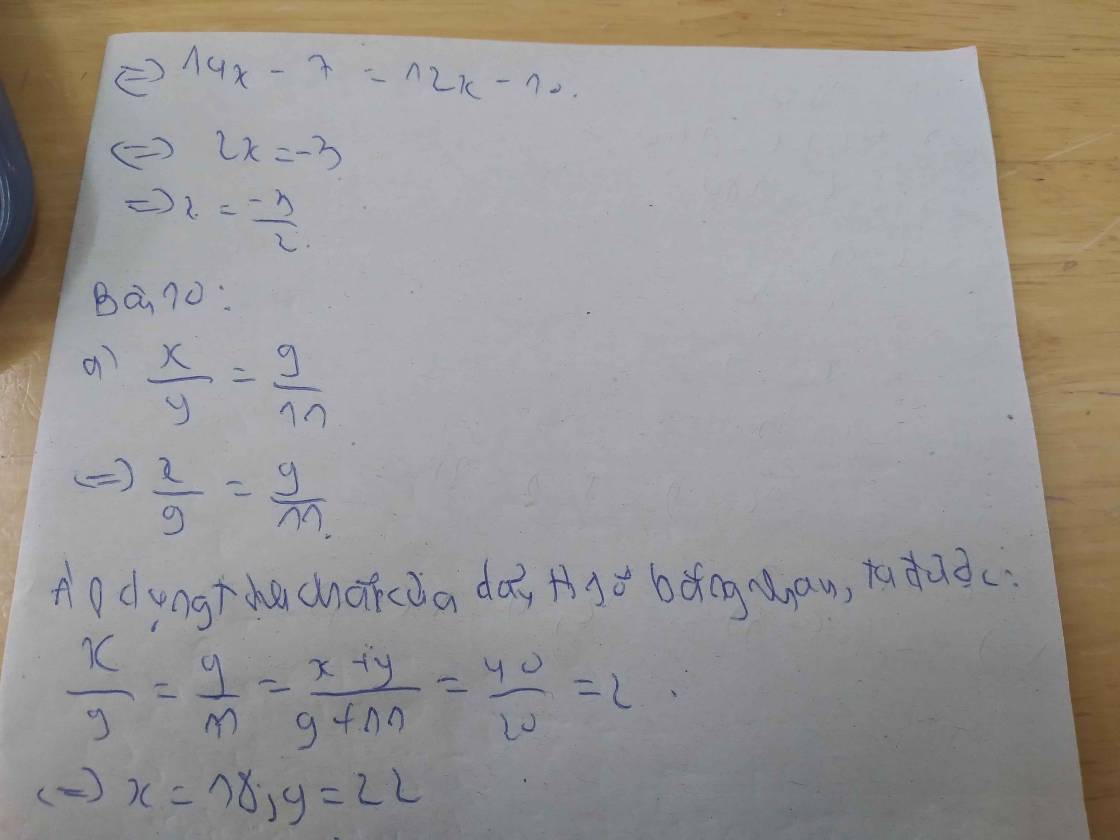 ⇔ 14x - 7 = 12x - 10.
⇔ 2x = -3
⇒ x = -3/2.
Bài 10:
a) x/y = 9/11
⇔ x/9 = y/11.
Áp dụng tính chất của dãy tỉ số bằng nhau, ta được:
x/9 = y/11 = x+y/9+11 = 40/20 = 2.
⇔ x = 18; y = 22